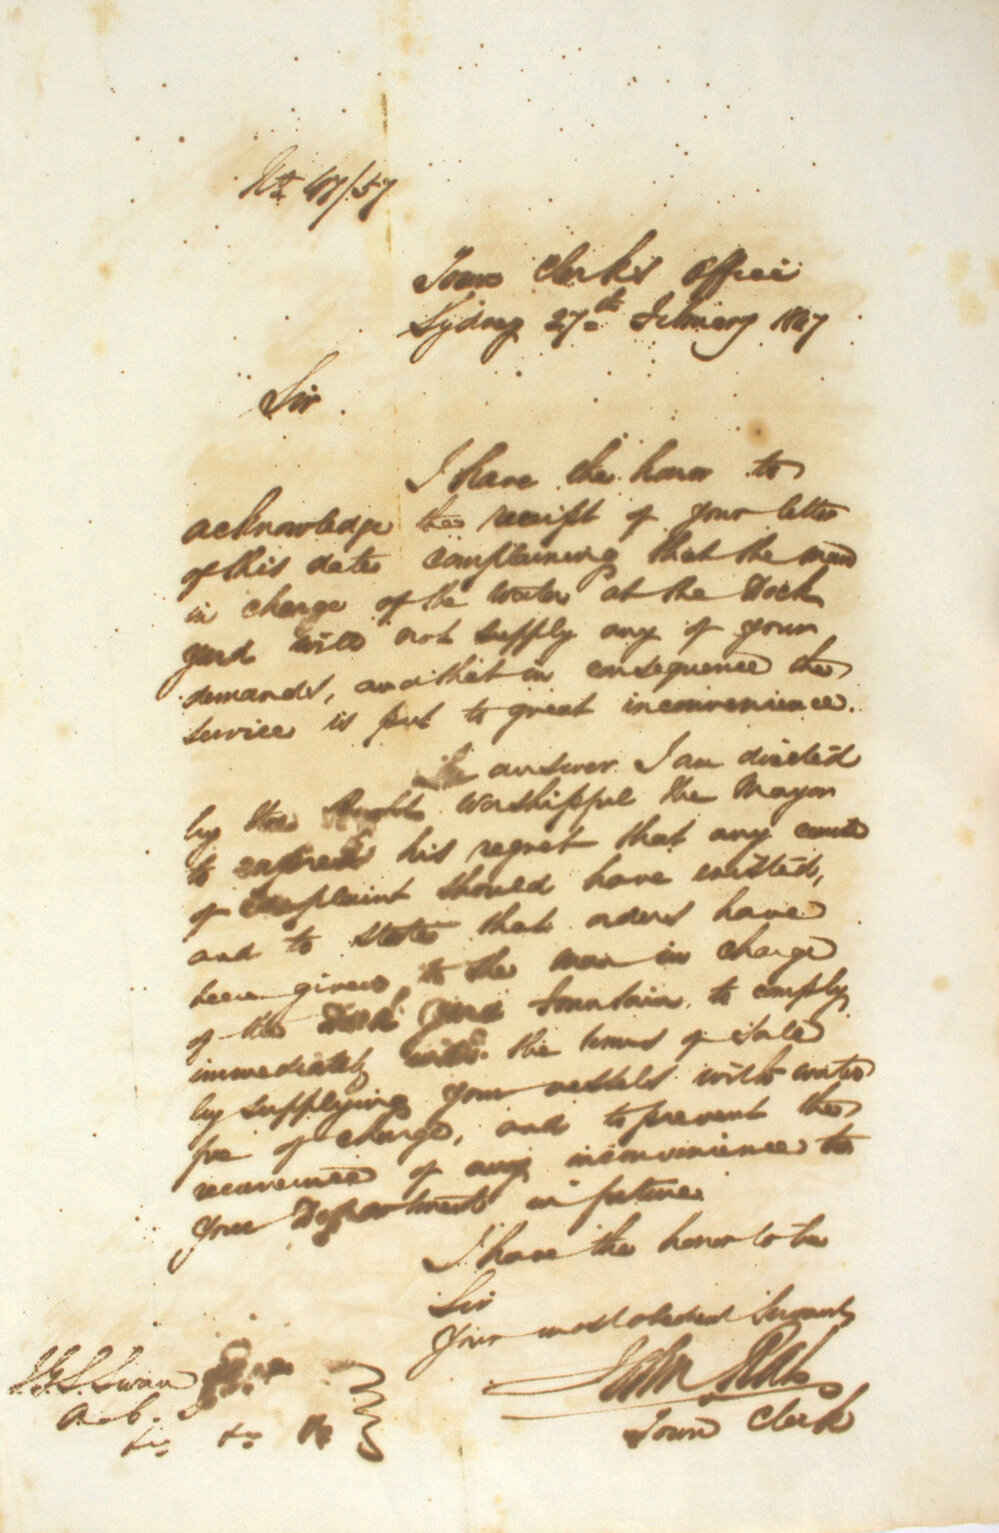 No 47/57
Town Clerk's Office
Sydney 27th February 1847
Sir.
I have the honor to
acknowledge the receipt of your letter
of this date complaining that the man
in charge of the Water at the Dock
yard will not supply any of your
demands, and that in consequence the
service is put to great inconvenience.
In answer I am directed
by the Right Worshipful the Mayor
to express his regret that any cause
of Complaint should have existed,
and to state that orders have
been given to the man in charge
of the Dock Yard fountain to comply
immediately with the terms of Sale
by supplying your vessels with water
free of charge, and to prevent the
recurrence of any inconvenience to
your Department in future.
I have the honor to be
Sir
Your most obedient Servant
John
Town Clerk
Swan